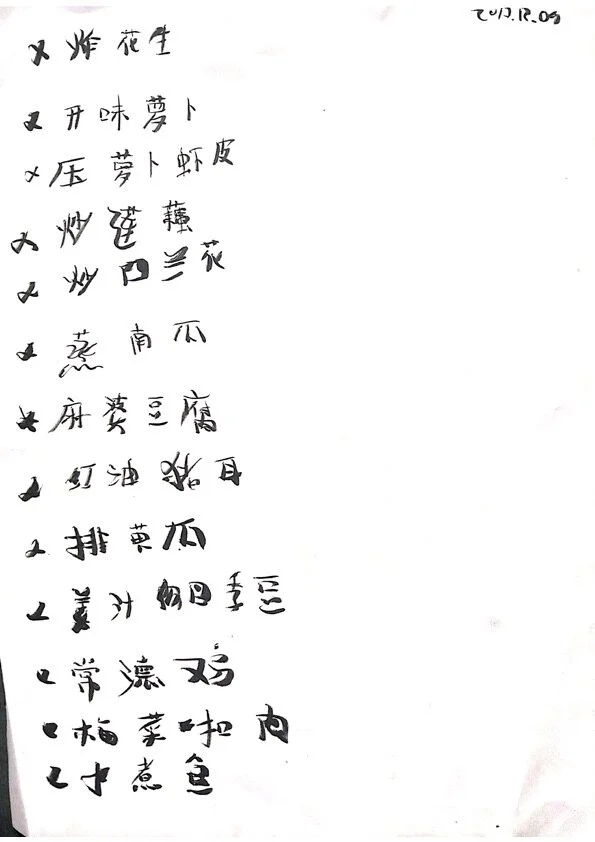 2017.12.09
x 炸花生
x 开味萝卜
x 压萝卜虾皮
x 炒莲藕
x 炒西兰花
x 蒸南瓜
x 麻婆豆腐
x 红油猪耳
x 排黄瓜
姜汁四季豆
常德鸡
梅菜扣肉
水煮鱼